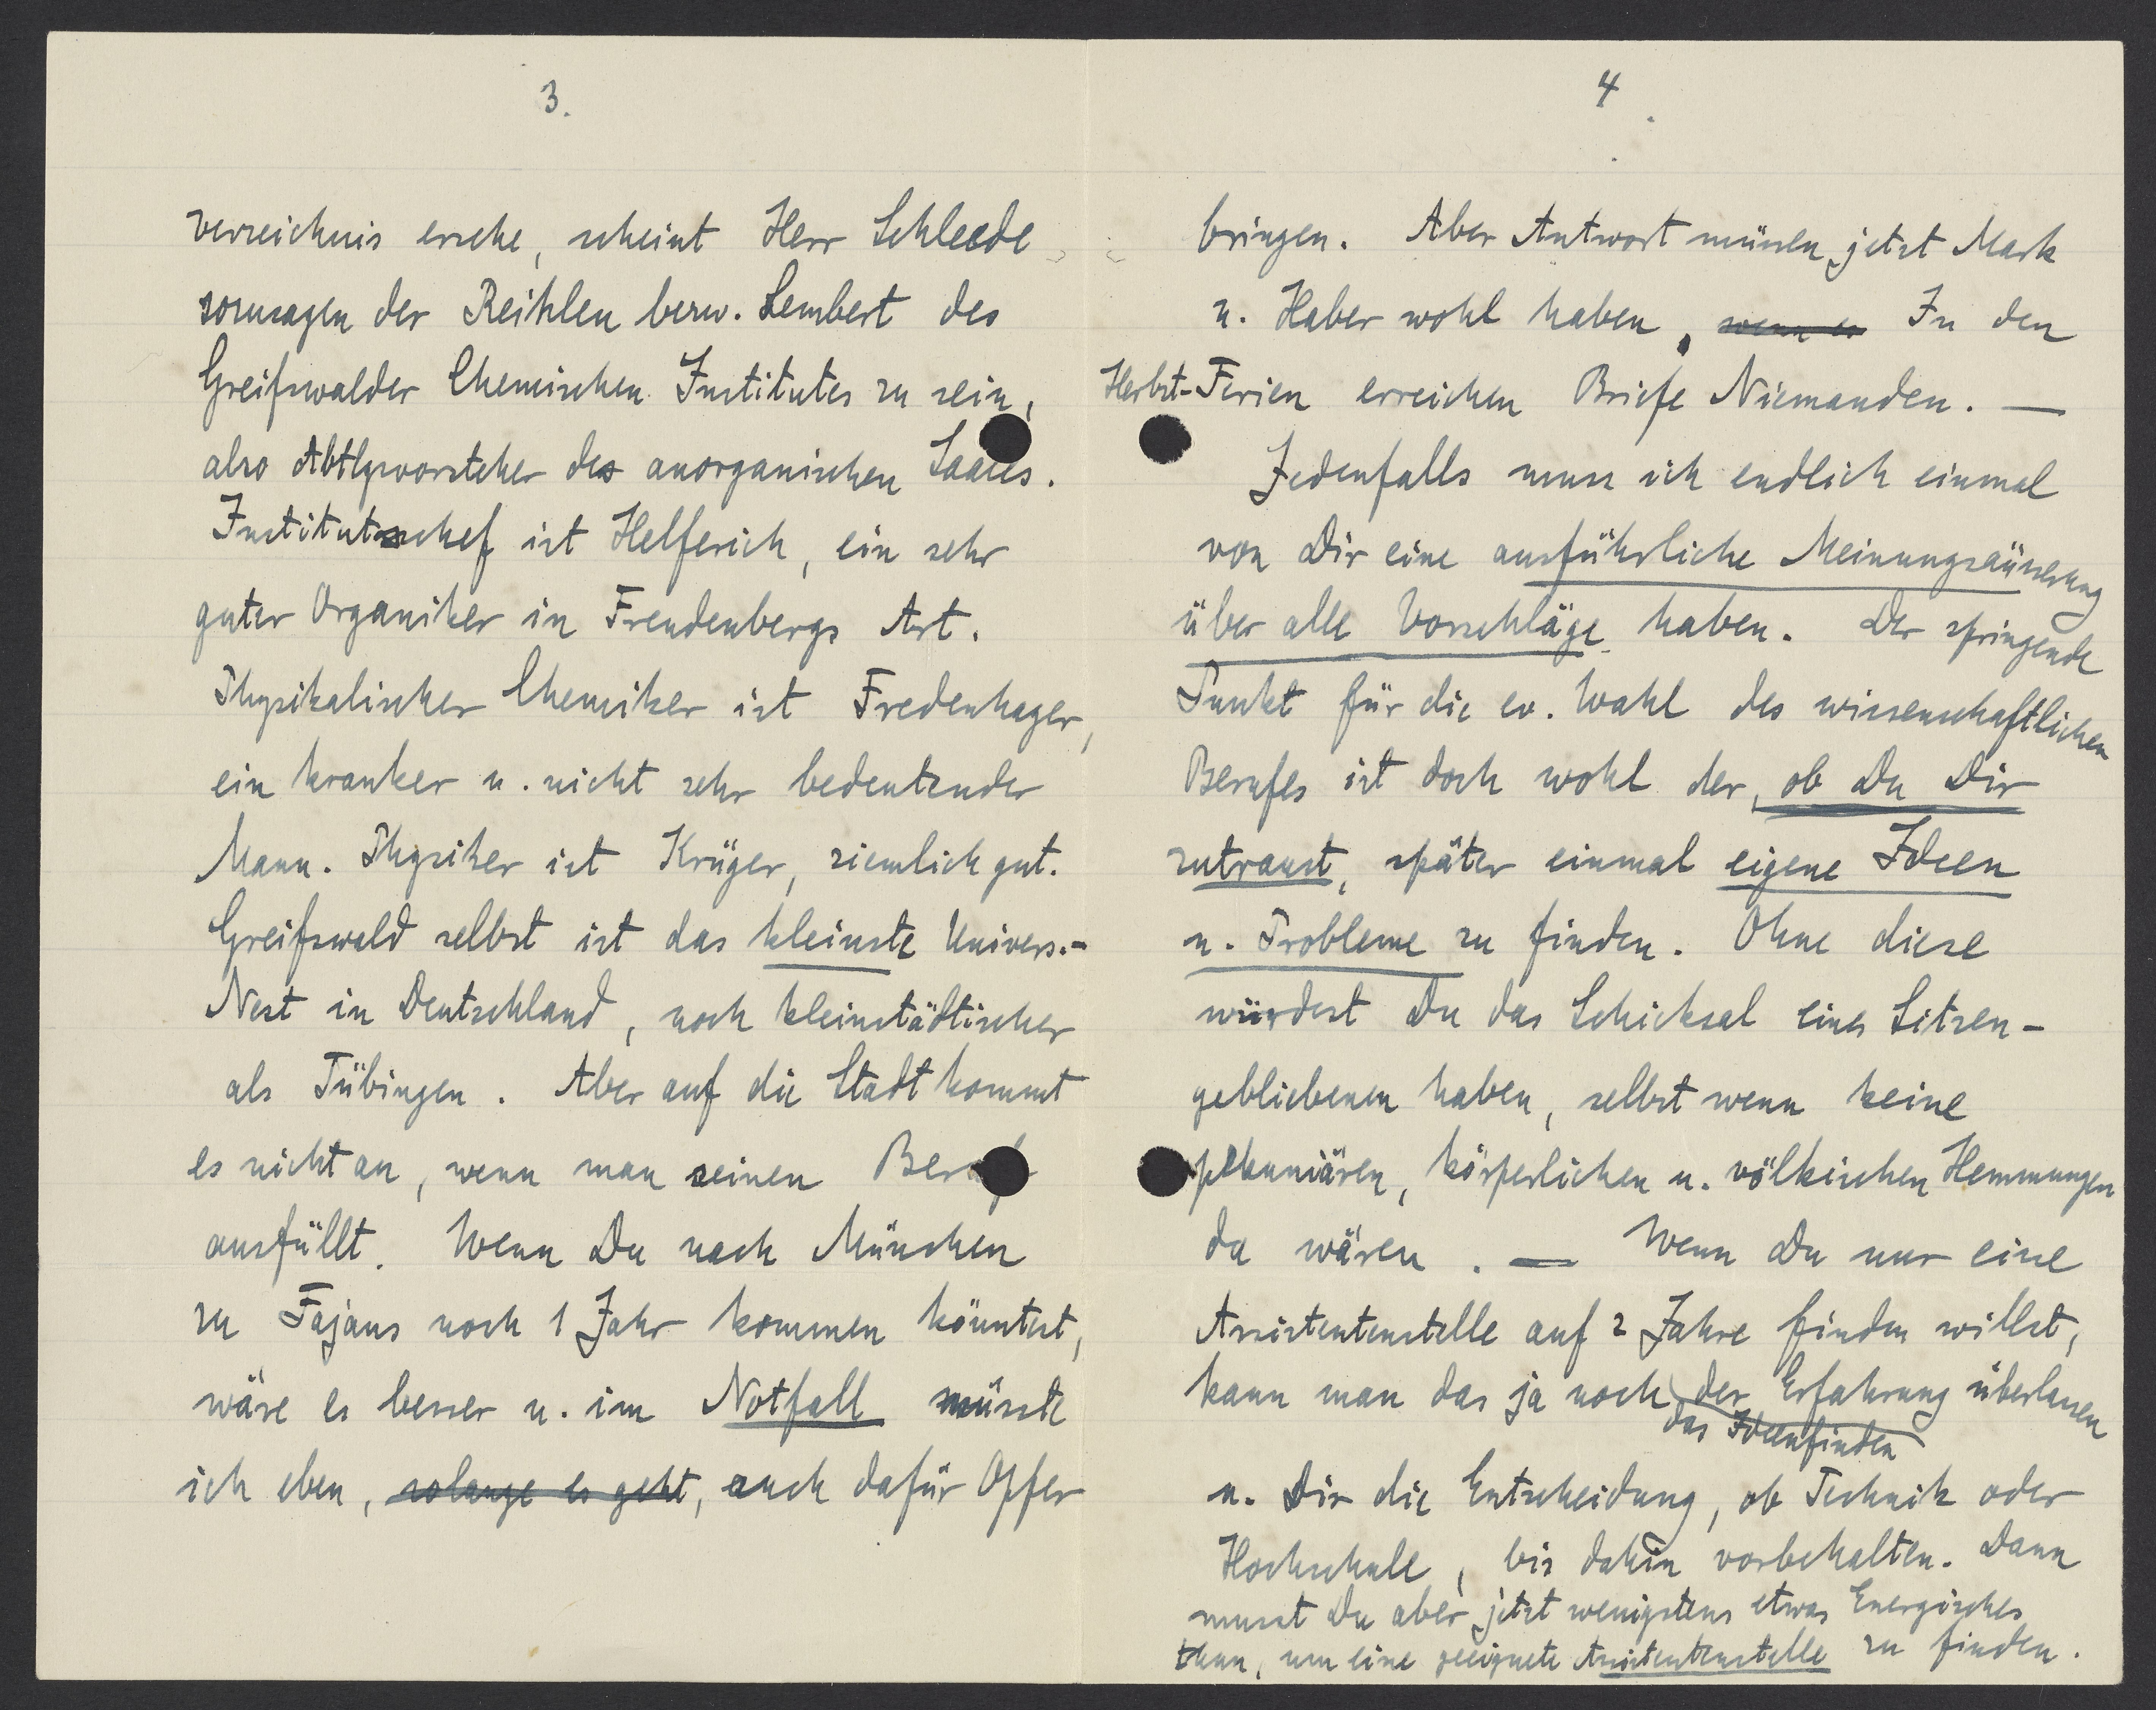 3.
verzeichnis ersehe, scheint Herr Schleede
sozusagen der Reihlen bezw. Lembert des
Greifswalder Chemischen Institutes zu sein,
also Abtlgsvorsteher des anorganischen Saales.
Institutschef ist Helferich, ein sehr
guter Organiker in Freudenbergs Art.
Physikalischer Chemiker ist Fredenhagen,
ein kranker u. nicht sehr bedeutender
Mann. Physiker ist Krüger, ziemlich gut.
Greifswald selbst ist das kleinste Univers.-
Nest in Deutschland, noch kleinstädtischer
als Tübingen. Aber auf die Stadt kommt
es nicht an, wenn man seinen Beruf
ausfüllt. Wenn Du nach München
zu Fajans noch 1 Jahr kommen könntest,
wäre es besser u. im Notfall müsste
ich eben, solange es geht, auch dafür Opfer
4
bringen. Aber Antwort müssen jetzt Mark
u. Haber wohl haben, wenn es In den
Herbst-Ferien erreichen Briefe Niemanden. —
Jedenfalls muss ich endlich einmal
von Dir eine ausführliche Meinungsäusserung
über alle Vorschläge haben. Der springende
Punkt für die ev. Wahl des wissenschaftlichen
Berufes ist doch wohl der, ob Du Dir
zutraust, später einmal eigene Ideen
u. Probleme zu finden. Ohne diese
würdest Du das Schicksal eines Sitzen-
gebliebenen haben, selbst wenn keine
pekuniären, körperlichen u. völkischen Hemmungen
da wären. — Wenn Du nur eine
Assistentenstelle auf 2 Jahre finden willst,
kann man das ja noch der Erfahrung überlassen
das Ideenfinden
u. Dir die Entscheidung, ob Technik oder
Hochschule, bis dahin vorbehalten. Dann
musst Du aber jetzt wenigstens etwas Energisches
thun, um eine geeignete Assistentenstelle zu finden.